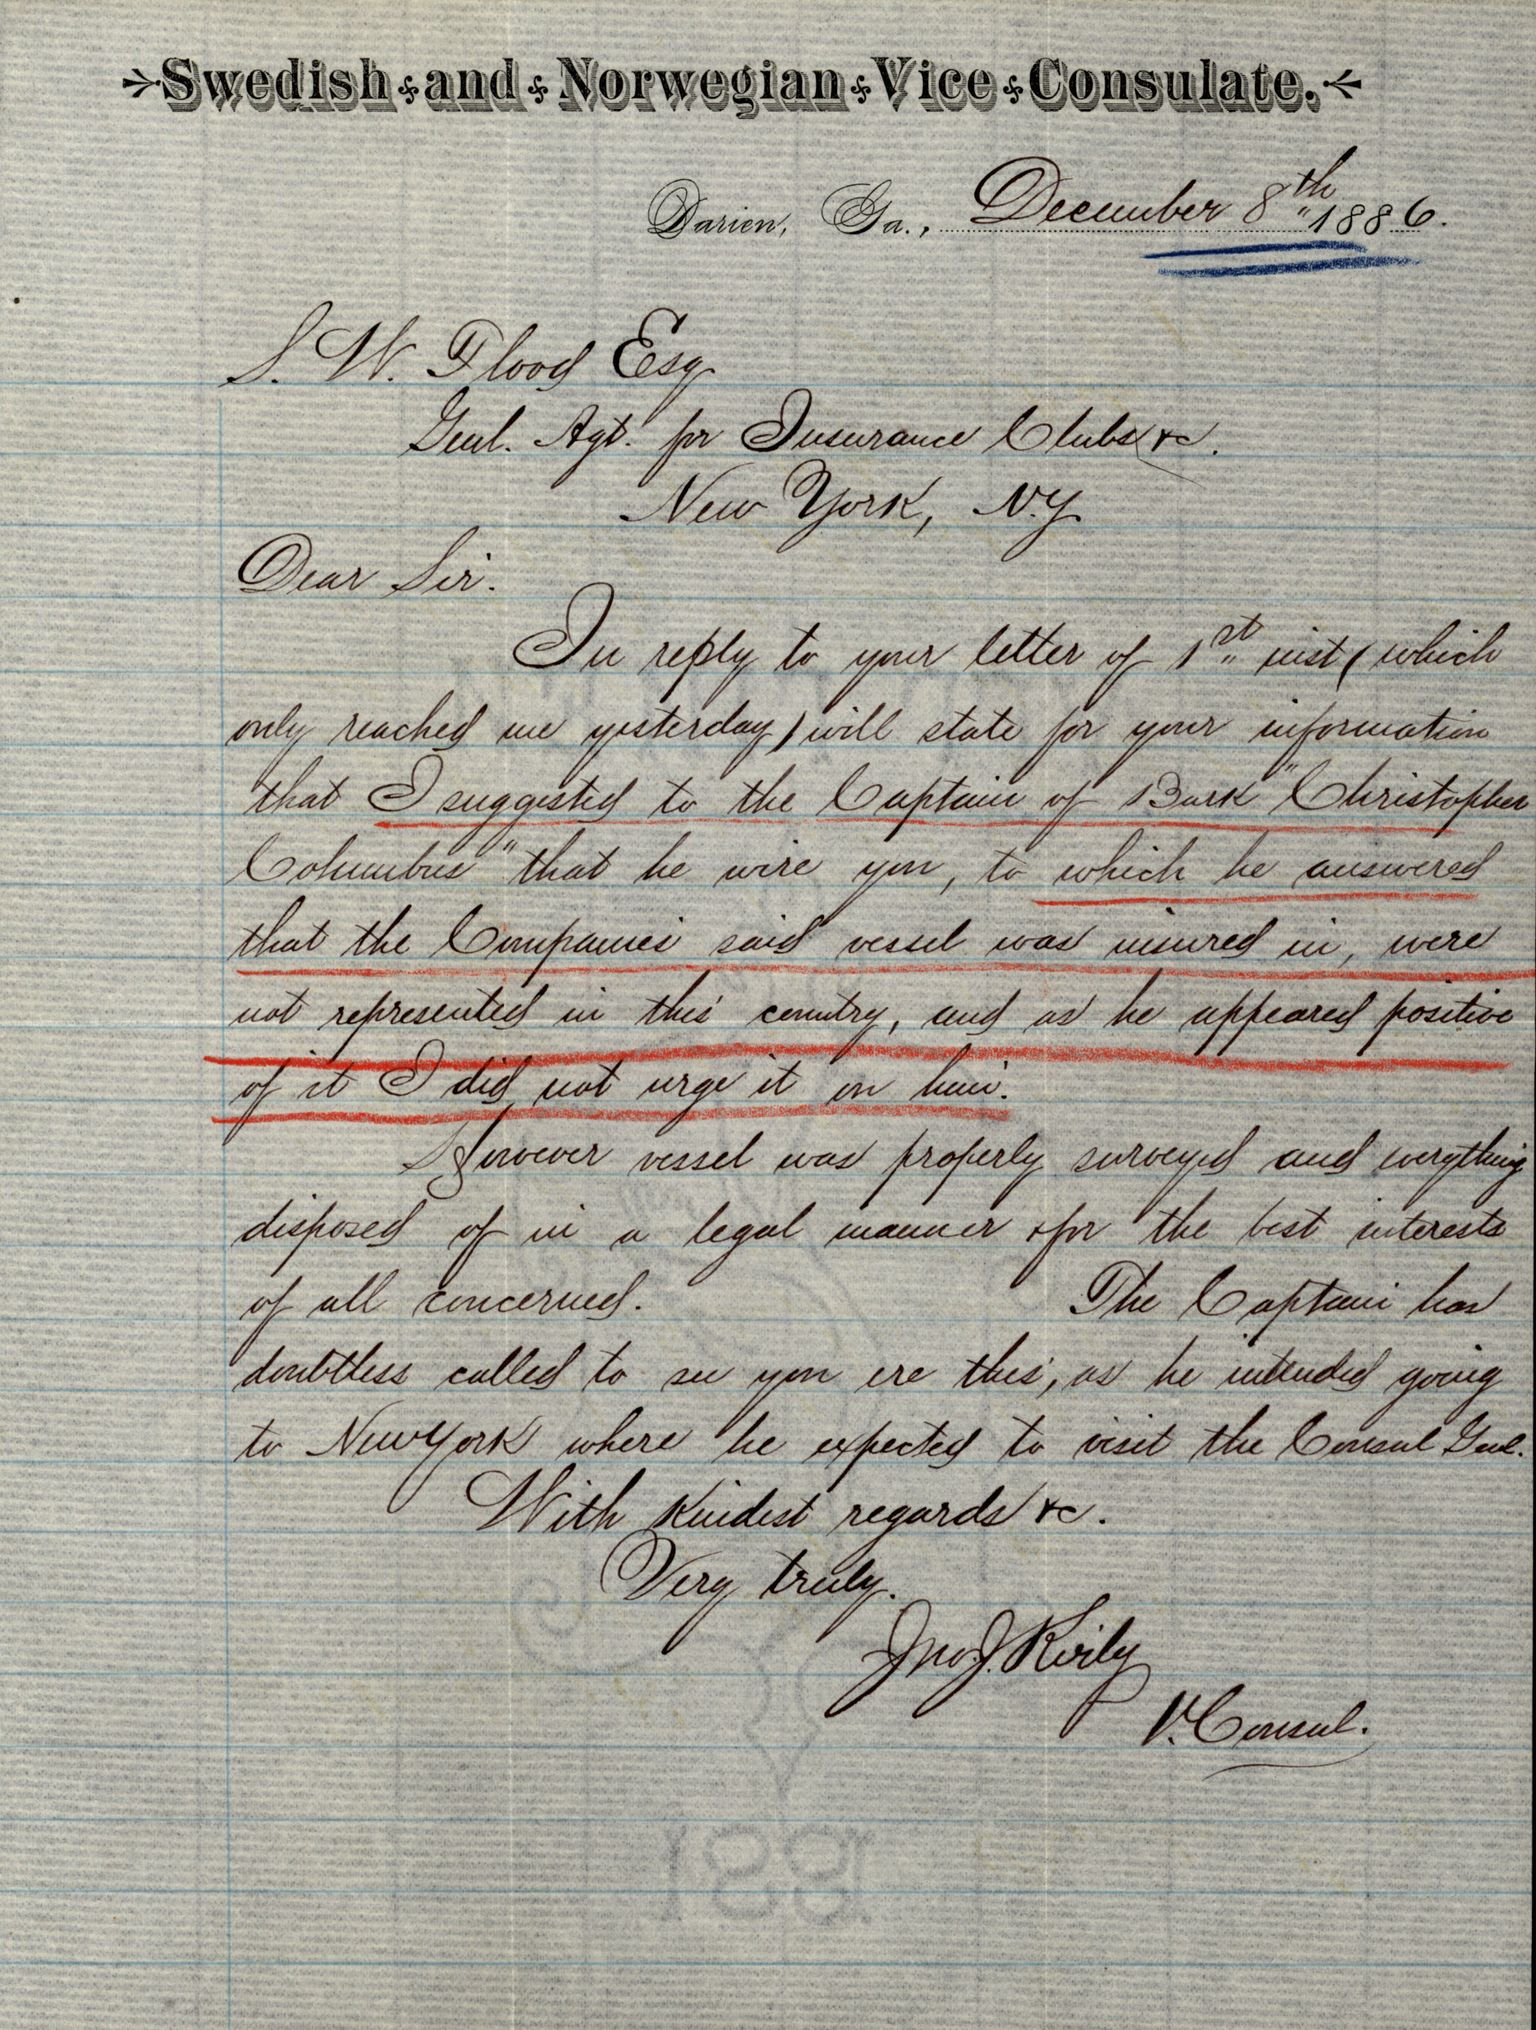 Swedish and Norwegian Vice Consulate.
Darien, Ga., December 8th 1886.
S. W. Flood Esq
Genl. Agt. for Insurance Clubs &c.
New York, N.Y.
Dear Sir.
In reply to your letter of 1st inst (which
only reached me yesterday) will state for your information
that I suggested to the Captain of Bark "Christopher
Columbus" that he wire you, to which he answered
that the Companies said vessel was insured in, were
not represented in this country, and as he appeared positive
of it I did not urge it on him.
However vessel was properly surveyed and everything
disposed of in a legal manner & for the best interests
of all concerned. The Captain has
doubtless called to see you ere this, as he intended going
to New York where he expected to visit the Consul Genl.
With kindest regards &c.
Very truly.
Jno. J.
V. Consul.
1881